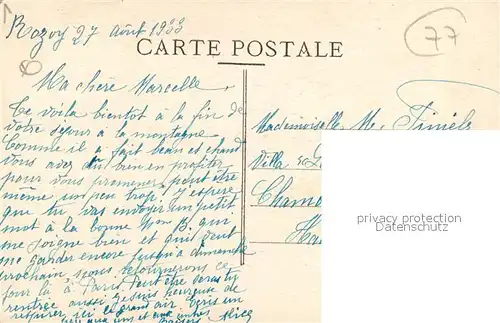 Rozoy 27 Août 1933
77
CARTE POSTALE
Ma chère Marcelle,
Te voila bientôt à la fin de
votre séjour à la montagne
Comme il a fait beau et chaud
vous avez du bien en profiter
pour vous promener, peut être
même un peu trop. J'espère
que tu vas envoyer un petit
mot à la bonne Mme B. qui
me soigne bien et qui veut
me garder encore jusqu'à dimanche
prochain, nous retournerons ce
jour là à Paris. Peut être seras tu
rentrée aussi
respirer, ici le grand air. Ecris un
peu
Baisers
Mademoiselle M. Finiels
Villa
Chamo
Hau
privacy protection